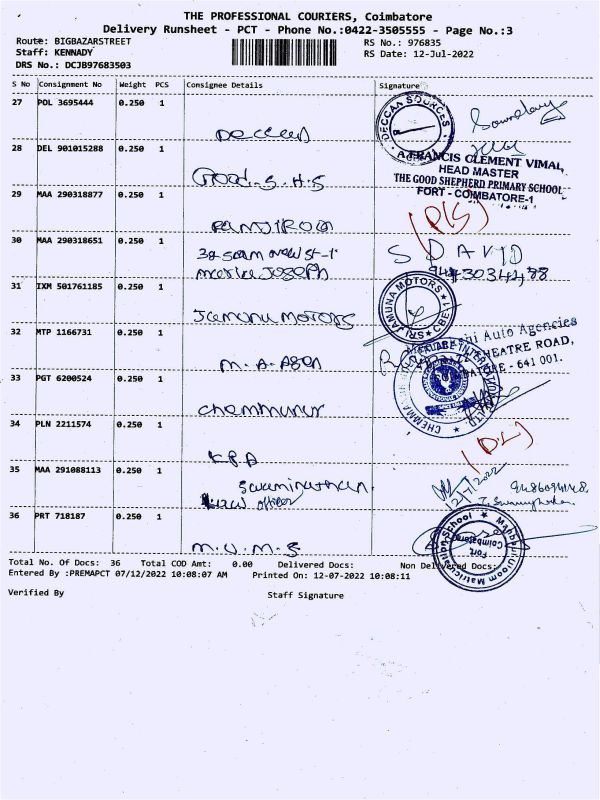 THE PROFESSIONAL COURIERS, Coimbatore
Delivery Runsheet - PCT - Phone No.:0422-3505555 - Page No.:3
Route: BIGBAZARSTREET RS No.: 976835
Staff: KENNADY RS Date: 12-Jul-2022
DRS No.: DCJB97683503
S No Consignment No Weight PCS Consignee Details Signature
27 POL 3695444 0.250 1
DECCAN SOURCES
28 DEL 901015288 0.250 1
Good. S. H. S
A FRANCIS CLEMENT VIMAL,
HEAD MASTER
THE GOOD SHEPHERD PRIMARY SCHOOL
FORT - COIMBATORE-1
29 MAA 290318877 0.250 1
30 MAA 290318651 0.250 1
S DAVID
Joseph
31 IXM 501761185 0.250 1
SRI JAMUNA MOTORS CBE-1
Jamuna MOTORS
32 MTP 1166731 0.250 1
Auto Agencies
THEATRE ROAD,
- 641 001.
M. A. Agen
33 PGT 6200524 0.250 1
34 PLN 2211574 0.250 1
(D.L)
35 MAA 291088113 0.250 1
Swaminathan
officer
12/7/2022
36 PRT 718187 0.250 1
Manbaul Uloom Matriculation School
Fort
Coimbatore
M. U. M. S
Total No. Of Docs: 36 Total COD Amt: 0.00 Delivered Docs: Non Delivered Docs:
Entered By :PREMAPCT 07/12/2022 10:08:07 AM Printed On: 12-07-2022 10:08:11
Verified By Staff Signature